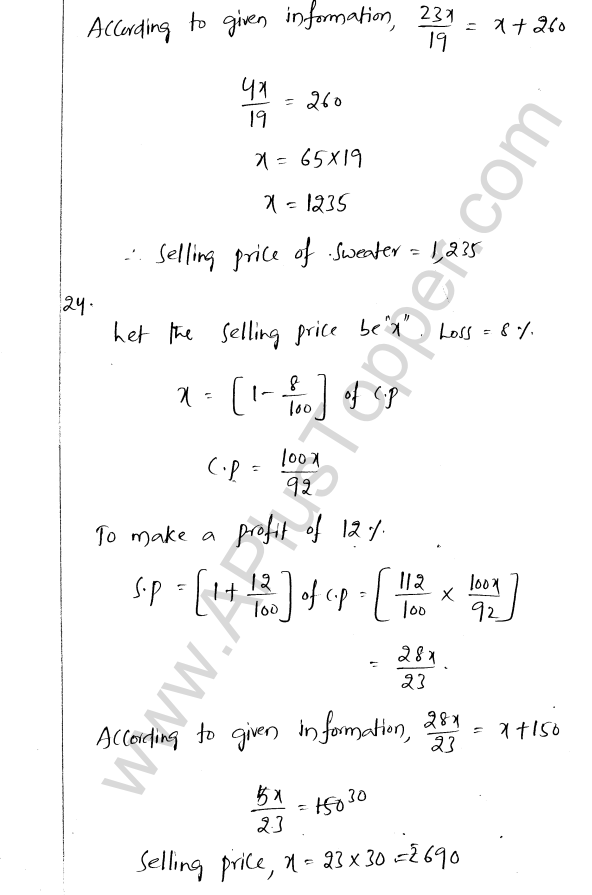 According to given information, 23x/19 = x + 260
4x/19 = 260
x = 65×19
x = 1235
∴ Selling price of sweater = 1,235
24.
Let the selling price be "x". Loss = 8%.
x = [1 - 8/100] of C.P
C.P = 100x/92
To make a profit of 12%.
S.P = [1 + 12/100] of C.P = [112/100 × 100x/92]
= 28x/23.
According to given information, 28x/23 = x + 150
5x/23 = 150 30
Selling price, x = 23 × 30 = ₹690
www.APlusTopper.com